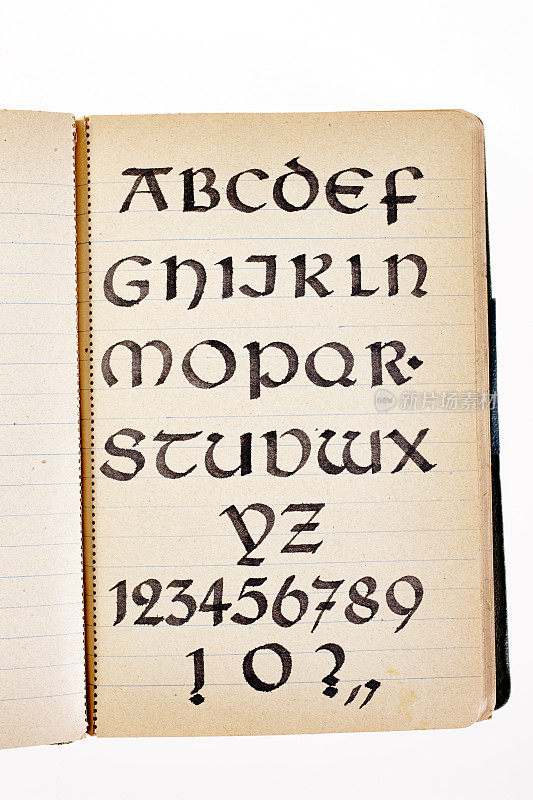 ABCDEF
GHIJKLN
MOPQR·
STUVWX
YZ
123456789
! O ? „
new 新片场素材